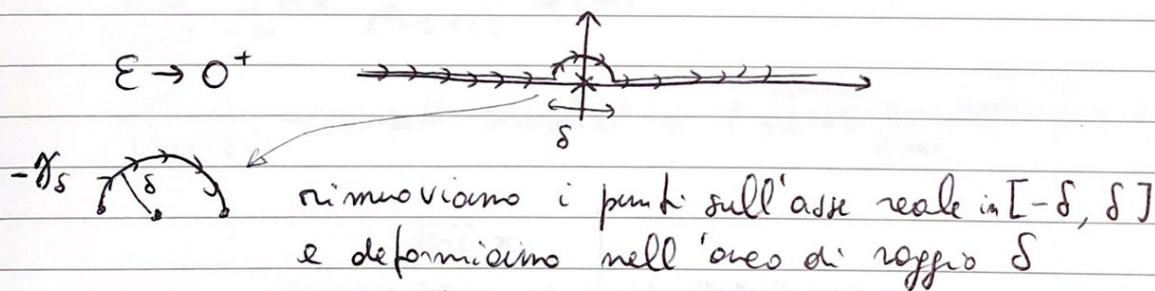 ε → 0⁺
δ
-γ_δ δ rimuoviamo i punti sull'asse reale in [-δ, δ]
e deformiamo nell'arco di raggio δ